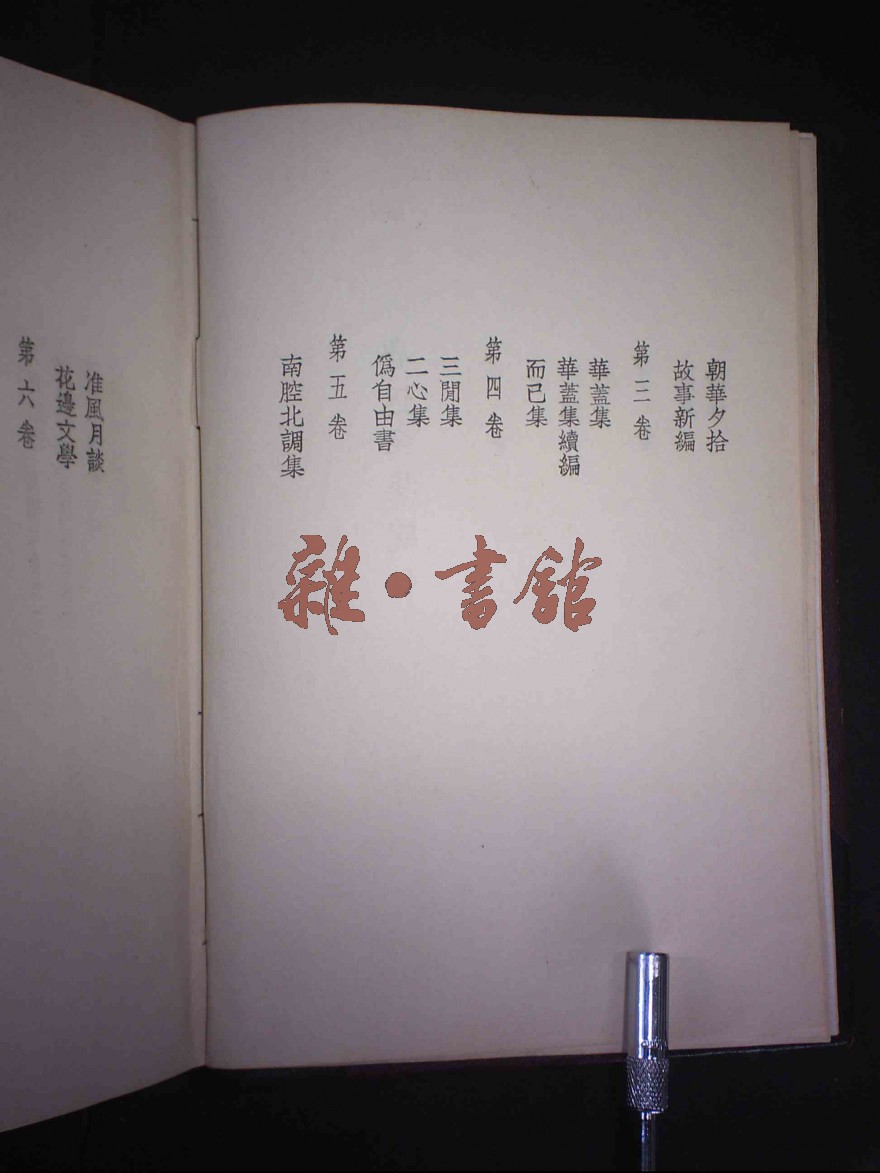 朝華夕拾
故事新編
第三卷
華蓋集
華蓋集續編
而已集
第四卷
三閒集
二心集
僞自由書
第五卷
南腔北調集
准風月談
花邊文學
第六卷
雜·書館